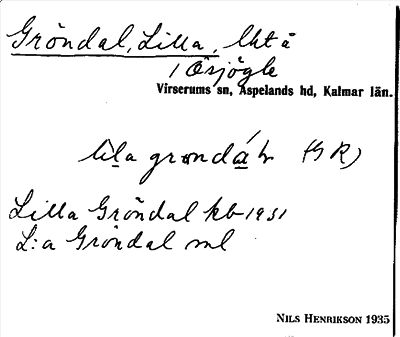 Gröndal, Lilla, lht å
1 Ösjögle
Virserums sn, Aspelands hd, Kalmar län.
lila grondáh (GR)
Lilla Gröndal kb 1931
L:a Gröndal ml
NILS HENRIKSON 1935